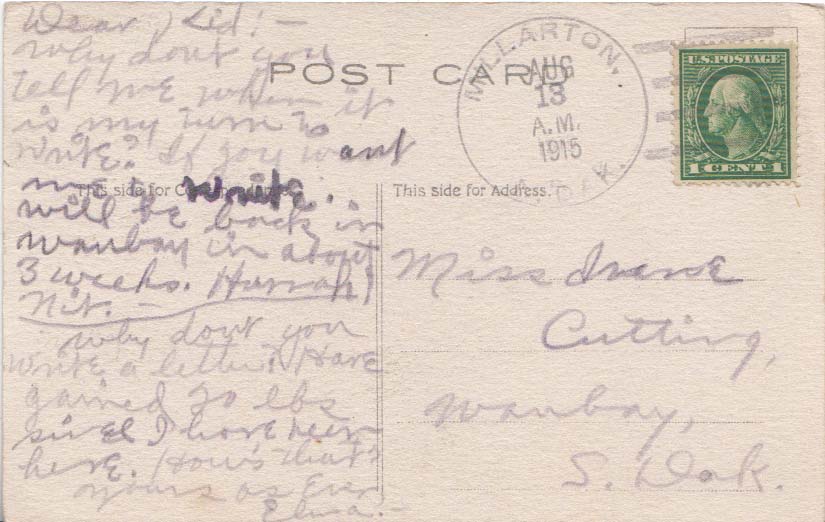 Dear Kid! —
Why dont you
tell me when it
is my turn to
write? If you want
me to write.
will be back in
Waubay in about
3 weeks. Hurrah!
Nit. —
Why dont you
write a letter? Have
gained 20 lbs
since I have been
here. How's that?
Yours as Ever
Elma. —
POST CARD
MILLARTON,
AUG
13
A.M.
1915
N. DAK.
U.S. POSTAGE
1 CENT 1
This side for Correspondence.
This side for Address.
Miss Irene
Cutting,
Waubay,
S. Dak.